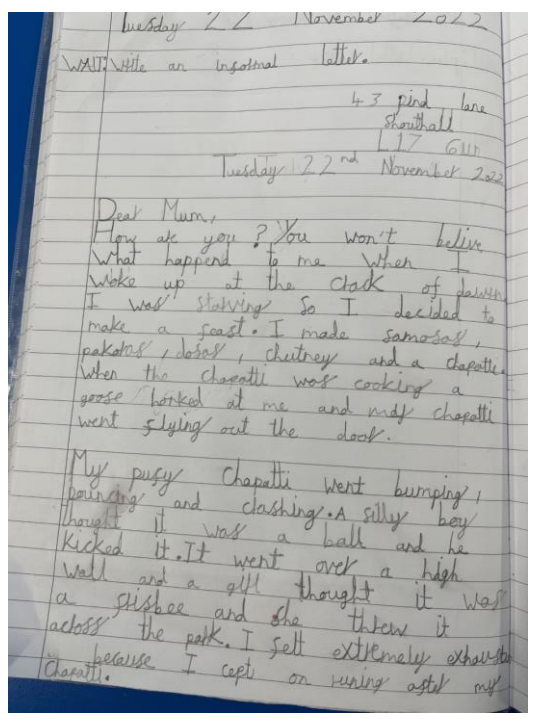 Tuesday 22 November 2022
WALT: Write an informal letter.
43 pind lane
Shouthall
L17
Tuesday 22nd November 2022
Dear Mum,
How are you? You won't belive
what happend to me when I
woke up at the crack of dawn
I was starving so I decided to
make a feast. I made samosas,
pakoras, dosas, chutney and a chapatti.
When the chapatti was cooking a
goose honked at me and my chapatti
went flying out the door.
My pufy chapatti went bumping,
bouncing and clashing. A silly boy
thought it was a ball and he
kicked it. It went over a high
wall and a girl thought it was
a frisbee and she threw it
across the park. I felt extremely exhausted
because I cept on runing after my
Chapatti.